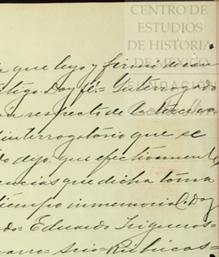 CENTRO DE
ESTUDIOS
DE HISTORIA
DE
a que leyo y firma de
tigo. Doy fe = Interrogado
respecto de la
interrogatorio que se
dijo que efectivament
encias que dicha toma
tiempo inmemorial. Doy
do= Eduardo Trigueros
Srio= Rubricas=